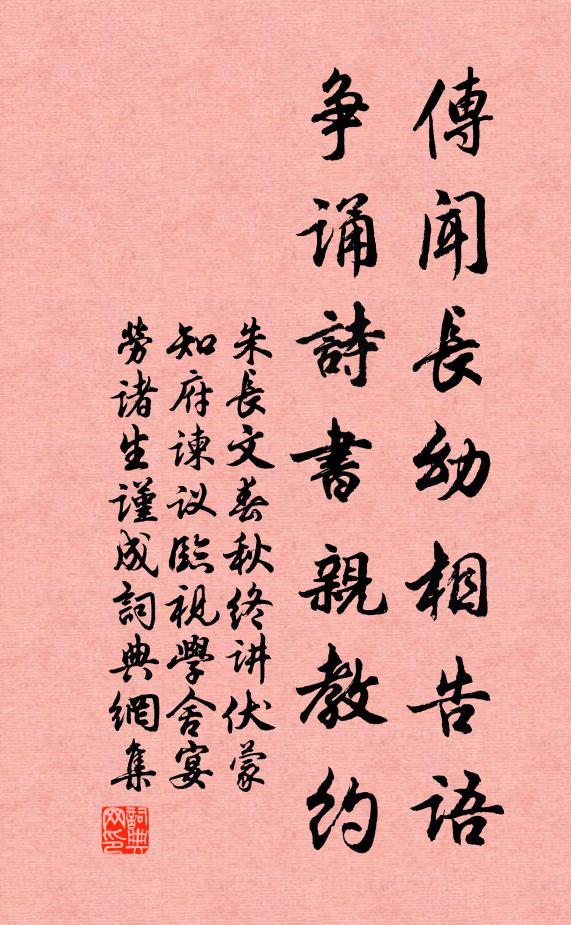 傳聞長幼相告語
争诵詩書親教約
朱長文春秋终讲伏蒙
知府谏议臨視學舍宴
劳诸生谨成詞典網集
詞典网印